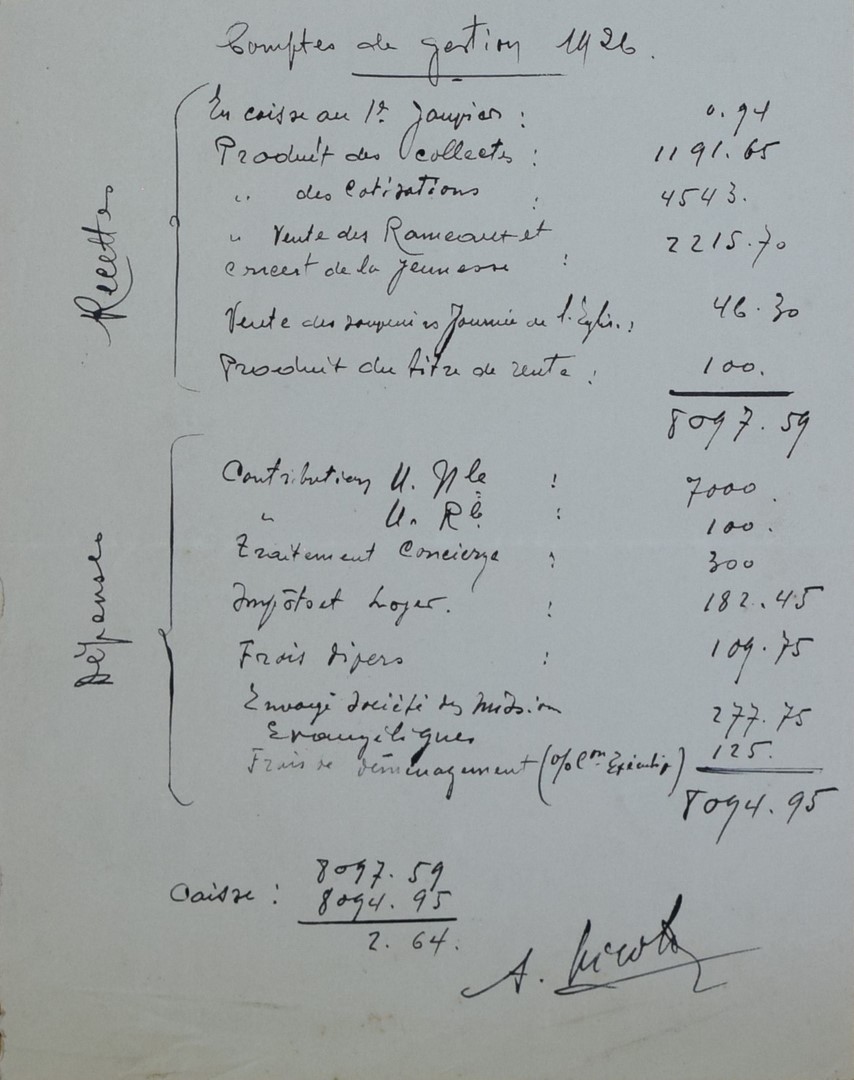 Comptes de gestion 1926.
Recettes
En caisse au 1er Janvier : 0.94
Produit des collectes : 1191.65
" des Cotisations : 4543.
" Vente des Rameaux et 2215.70
concert de la jeunesse :
Vente des souvenirs Journée de l'Église : 46.30
Produit du titre de rente : 100.
8097.59
Dépenses
Contribution U. Nle : 7000.
" U. Rle : 100.
Traitement Concierge : 300
Impôts et Loyer. : 182.45
Frais divers : 109.75
Envoyé Société des Mission 277.75
Evangéliques
Frais de déménagement ( Con Exécutif) 125.
8094.95
Caisse : 8097.59
8094.95
2.64.
A.